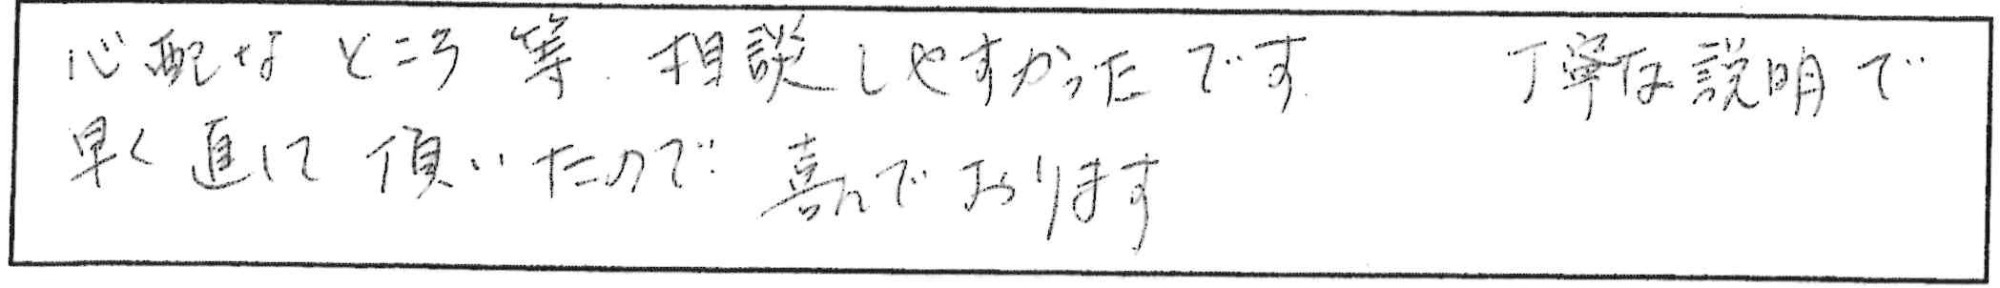 心配なところ等 相談しやすかったです 丁寧な説明で
早く直して頂いたので 喜んでおります